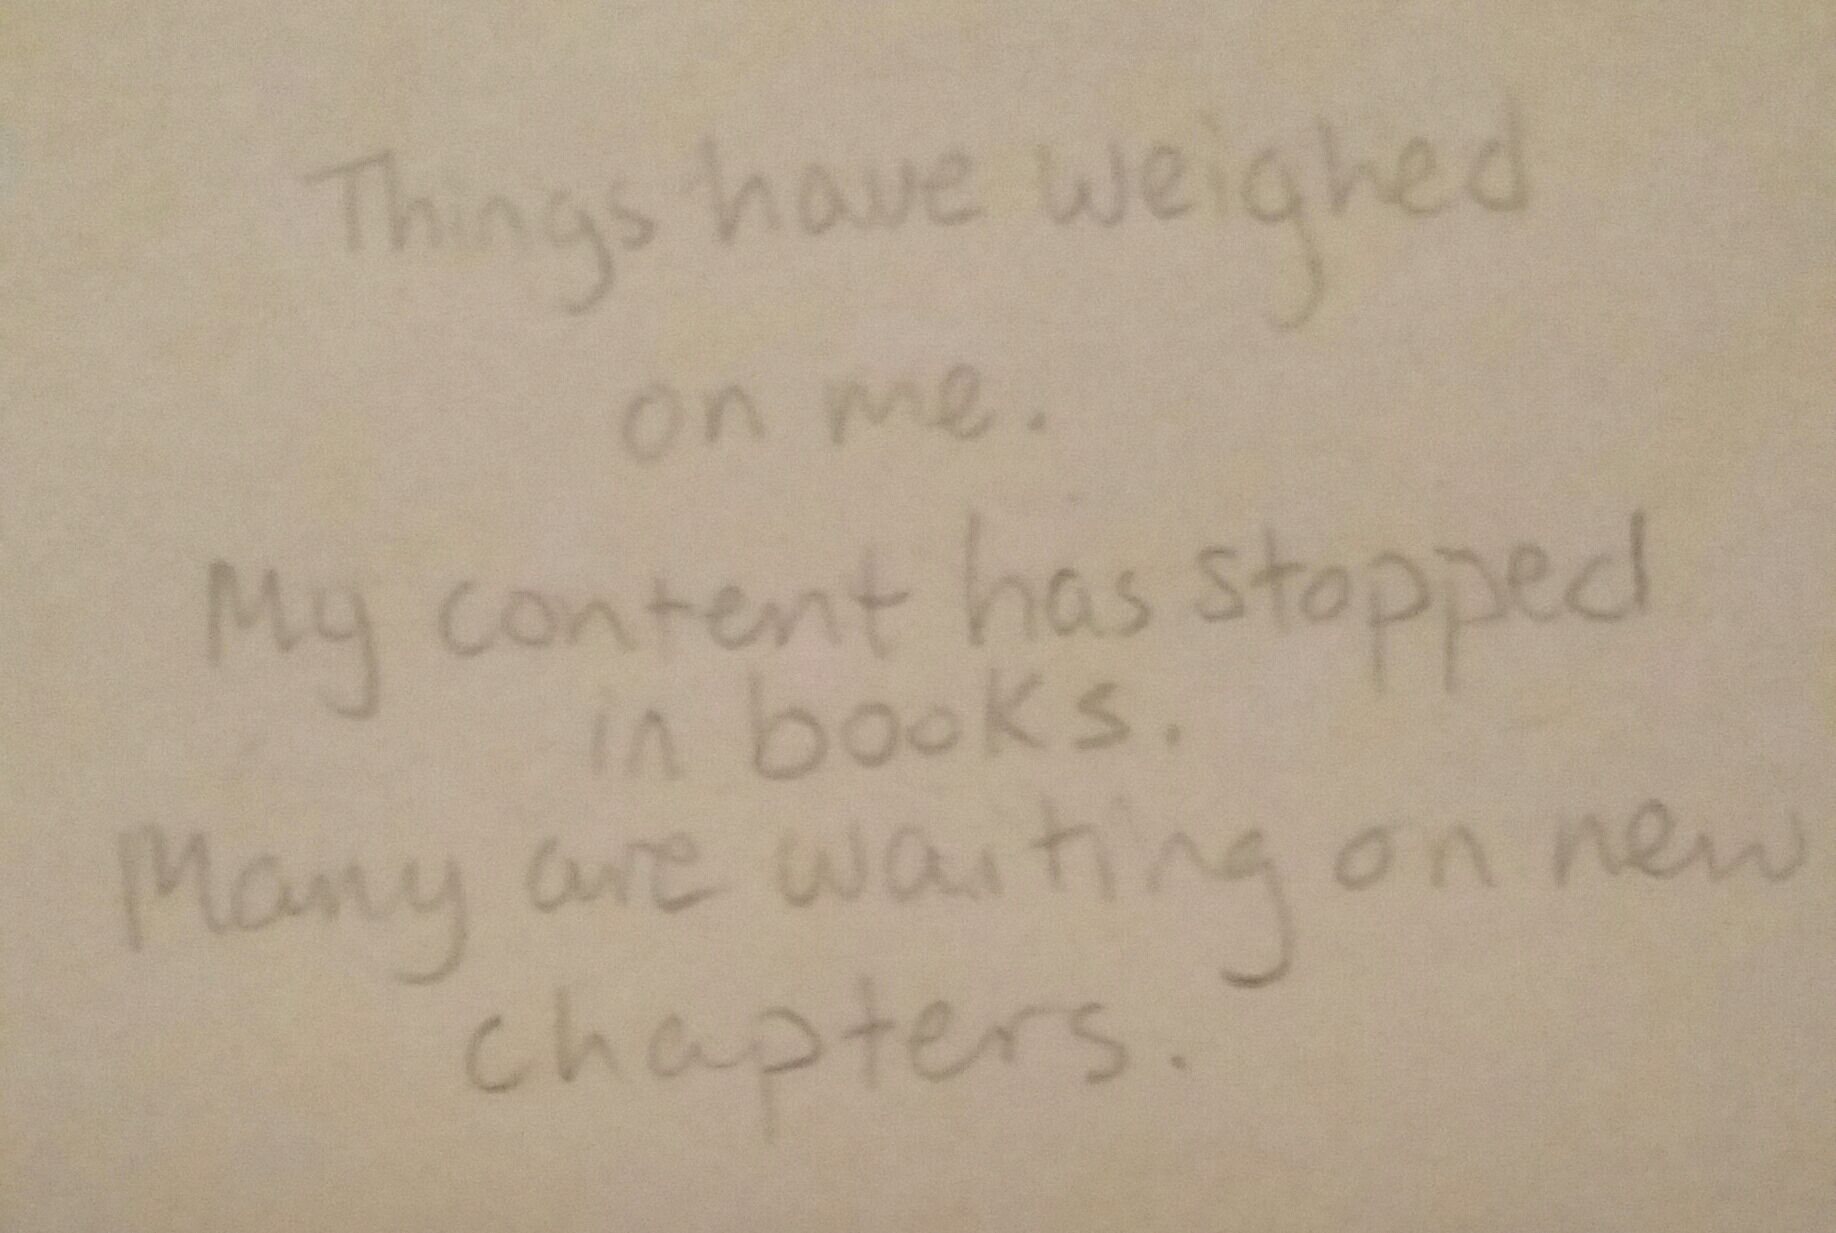 Things have weighed
on me.
My content has stopped
in books.
Many are waiting on new
chapters.